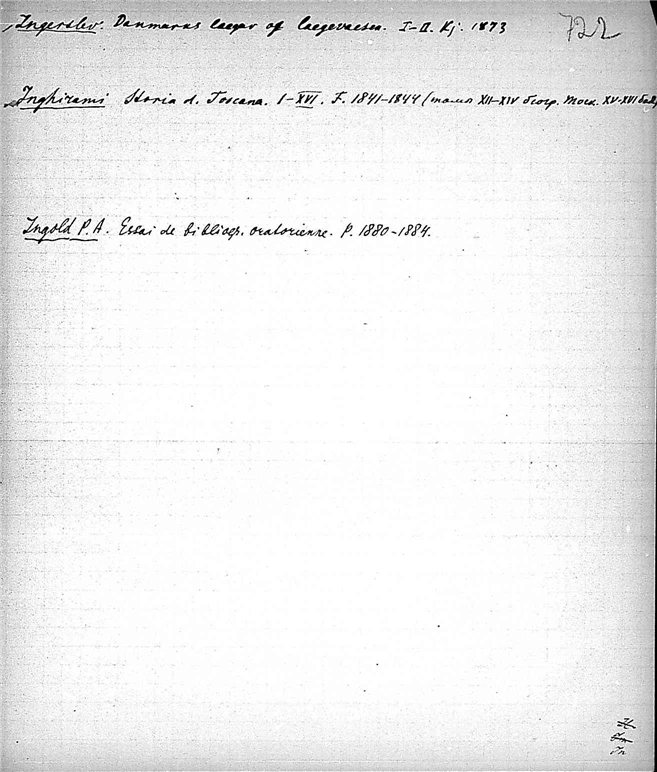 Ingerslev. Danmarks laeger og laegevaesen. I-II. Kj. 1873
722
Inghirami Storia d. Toscana. 1-XVI. F. 1841-1844 (томы XII-XIV биогр. тоск. XV-XVI
Ingold P.A. Essai de bibliogr. oratorienne. P. 1880-1884.
In